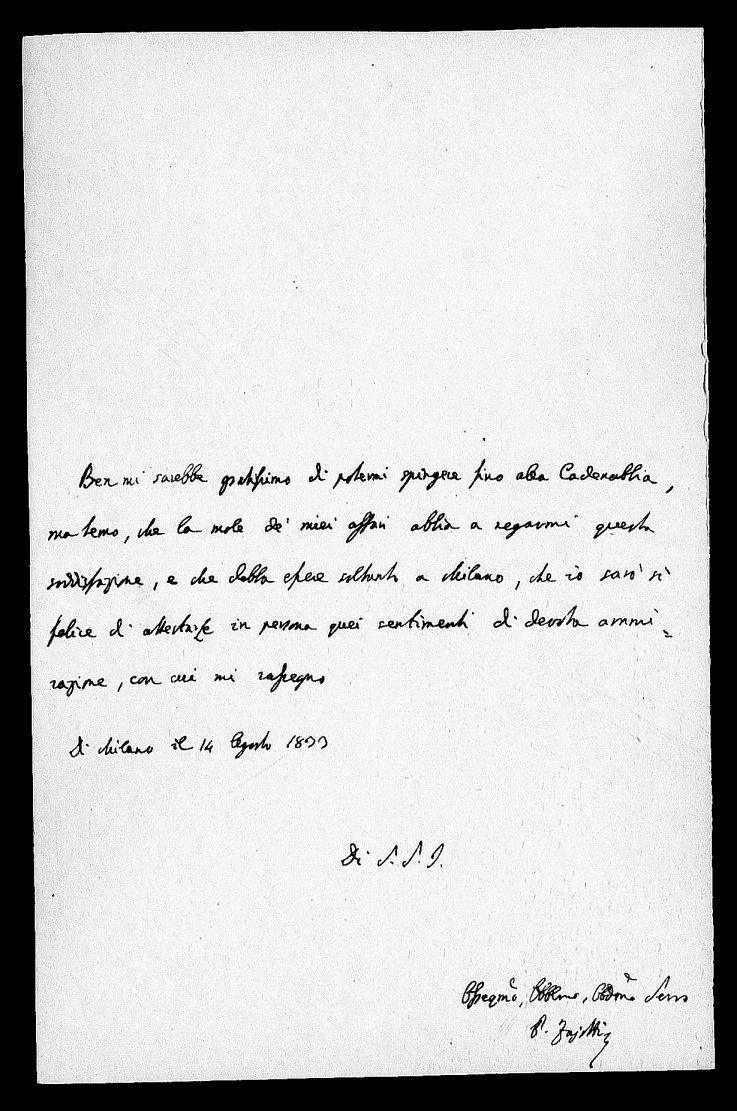 Ben mi sarebbe gratissimo di potermi spingere fino alla Cadenabbia,
ma temo, che la mole de' miei affari abbia a negarmi questa
soddisfazione, e che debba essere soltanto a Milano, che io sarò sì
felice di attestarle in persona quei sentimenti di devota ammi=
razione, con cui mi rassegno
Di Milano il 14 Agosto 1833
Di S. S. I.
Ossegmo, Obblmo, Obdmo Servo
P. Zajotti